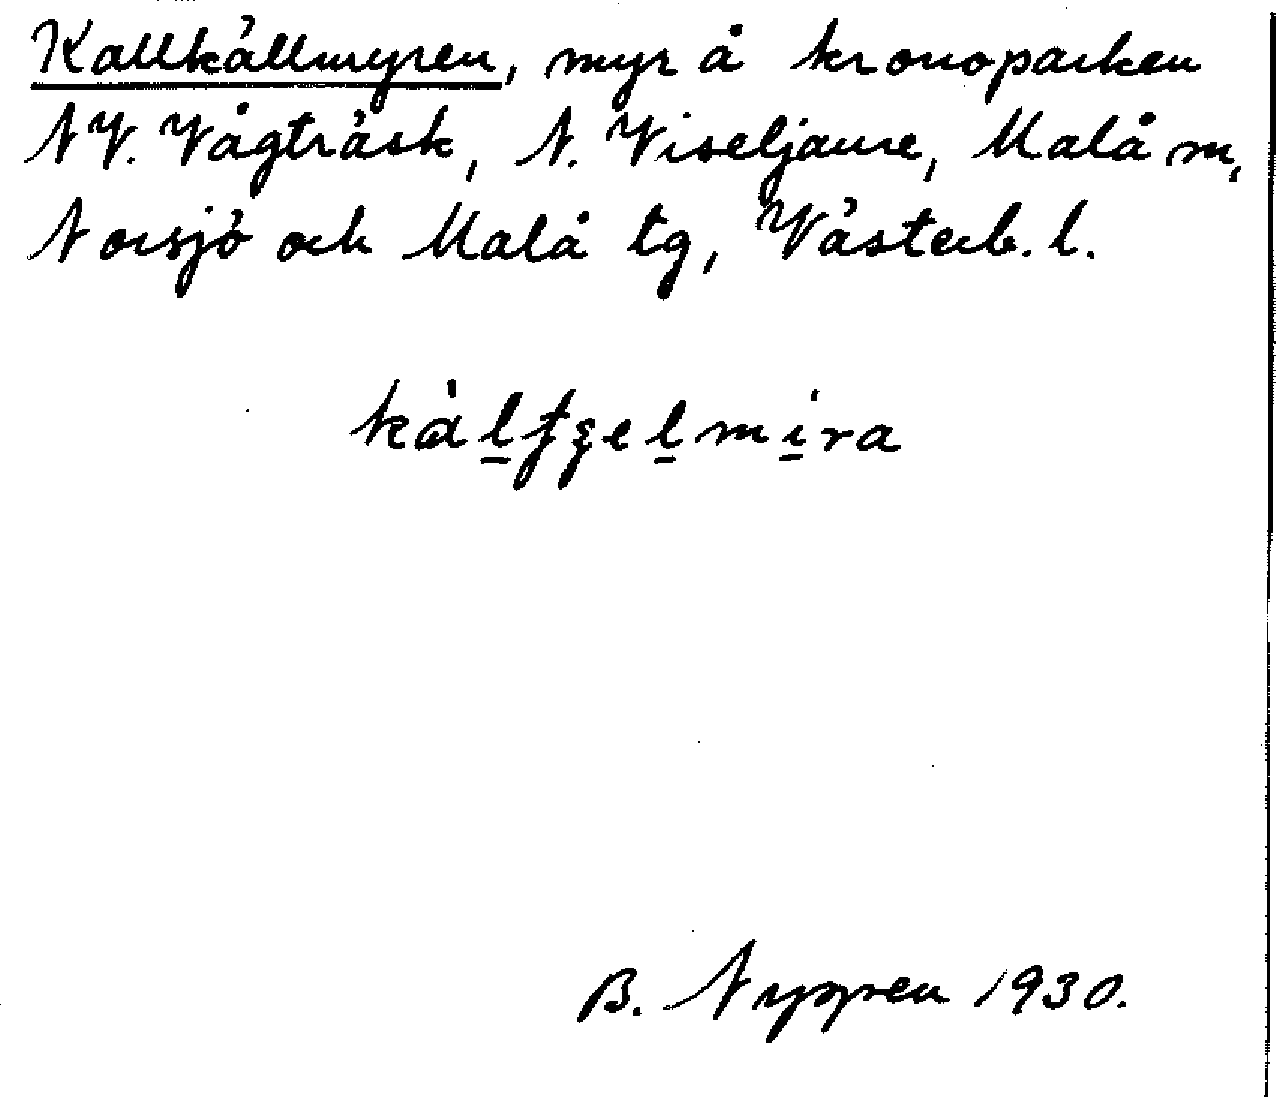 Kallkällmyren, myr å kronoparken
NV. Vågträsk, N. Viseljaure, Malå m,
Norsjö och Malå tg, Västerb. l.
B. Nygren 1930.